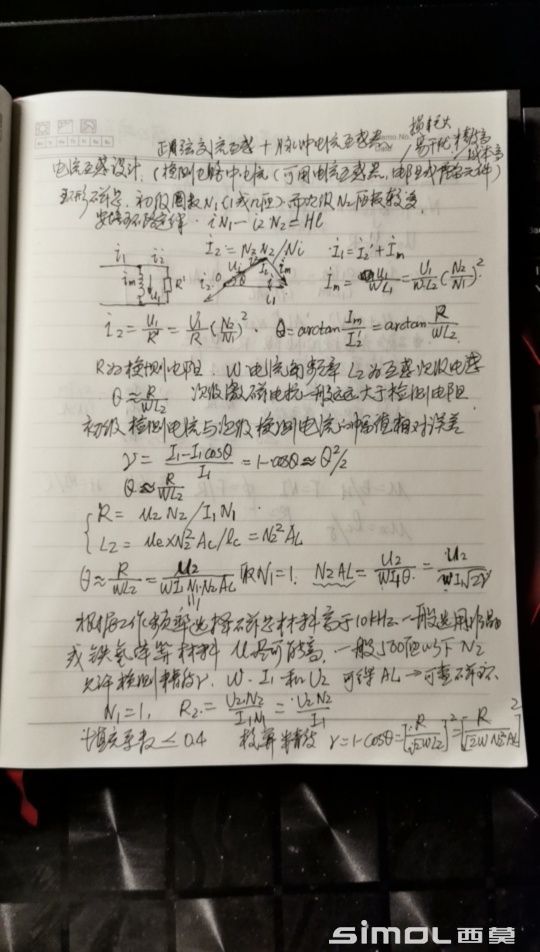 损耗大
正弦交流互感 + 脉冲电流互感器 高干扰 精度高
成本高
Memo No.
电流互感设计. (检测电路中电流 (可用电流互感器, 电阻或霍尔元件)
环形磁芯. 初级圈数N₁(1或几匝) 而次级N₂匝数较多.
安培环路定律. iN₁ - i₂N₂ = Hl
i₁ i₂ im u₁ R'
I₂' = N₂ I₂/N₁ · I₁ = I₂' + Im
Im = U₁/WL₁ = U₁/WL₂ (N₂/N₁)²
i₂ = U₁/R' = U₁/R (N₂/N₁)². θ = arctan Im/I₂' = arctan R/WL₂
R为检测电阻. W电流角频率 L₂为互感次级电感
θ ≈ R/WL₂ 次级激磁电抗一般远远大于检测电阻
初级检测电流与次级检测电流的幅值相对误差
γ = (I₁ - I₁cosθ)/I₁ = 1-cosθ ≈ θ²/2
θ ≈ R/WL₂
{ R = U₂N₂/I₁N₁
L₂ = UexN₂²Ac/lc = N₂²AL
θ ≈ R/WL₂ = U₂/WI₁N₁N₂AL 取N₁=1. N₂AL = U₂/WI₁θ = U₂/WI₁√2γ
根据工作频率选择磁芯材料高于10kHz. 一般选用非晶
或铁氧体等材料 U尽可能高. 一般500匝以下 N₂
允许检测精度γ. W. I₁和U₂ 可得AL → 可查不磁环
N₁=1, R₂ = U₂N₂/I₁N₁ = U₂N₂/I₁
填充系数 ≤ 0.4 核算精度 γ = 1-cosθ = [R/√2WL₂]² = [R/√2WN₂²AL]²
SIMOL西莫